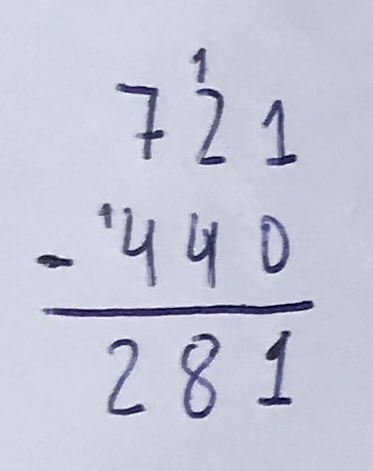 1
721
- ¹440
281